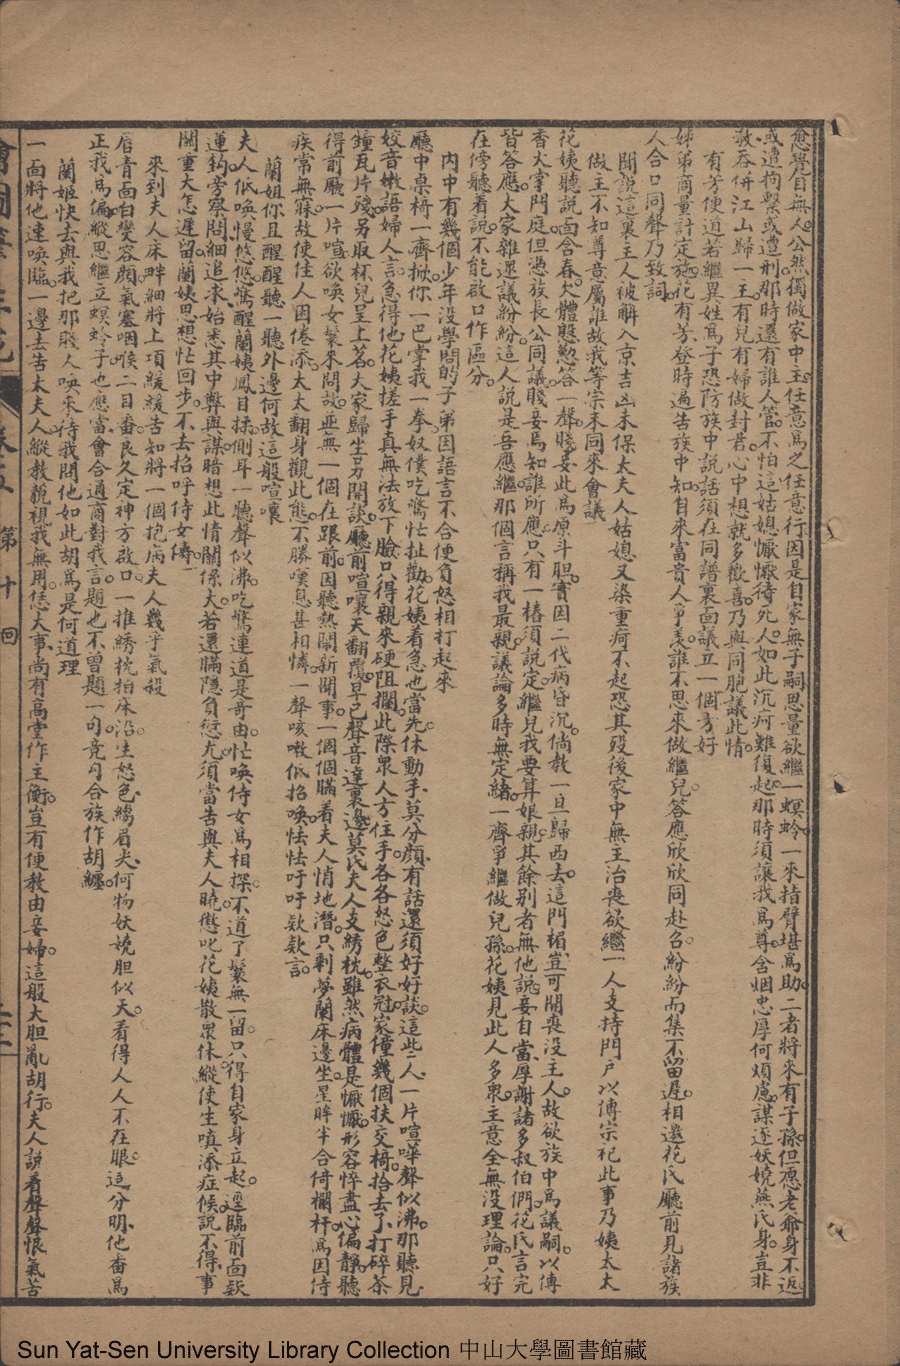 愈覺目無人公然獨做家中主任意爲之任意行因是自家無子嗣思量欲繼一螟蛉一來指臂堪爲助二者將來有子孫但愿老爺身不返
或遭拘繫或遭刑那時還有誰人管不怕這姑媳懨懨待死人如此沉疴難復起那時須讓我爲尊含烟忠厚何煩慮謀逐妖嬈燕氏身豈非
敢吞併江山歸一王有兒有婦做封君心中想就多歡喜乃與同胞議此情
有芳便道若繼異姓爲子恐防族中說話須在同譜裏面議立一個方好
姊弟商量計定施花有芳登時遍告族中知自來富貴人爭羨誰不思來做繼兒答應欣欣同赴召紛紛而集不留遲相邀花氏廳前見諸族
人合口同聲乃致詞
聞說這裏主人被解入京吉凶未保太夫人姑媳又染重疴不起恐其殁後家中無主治喪欲繼一人支持門戶以傳宗祀此事乃姨太太
做主不知尊意屬誰故我等宗未同來會議
花姨聽說面含春欠體慇懃答一聲賤妾此爲原斗胆實因二代病昏沉倘教一旦歸西去這門楣豈可開喪没主人故欲族中爲議嗣以傳
香火掌門庭但憑族長公同議賤妾焉知誰所應只有一樁須說定繼兒我要算娘親其餘别者無他說妾自當厚謝諸多叔伯們花氏言完
皆答應大家雜還議紛紛這人說是吾應繼那個言稱我最親議論多時無定緒一齊爭繼做兒孫花姨見此人多衆主意全無没理論只好
在傍聽着說不能啟口作區分
内中有幾個少年没學問的子弟因語言不合便負怒相打起來
廳中桌椅一齊掀你一巴掌我一拳奴僕吃驚忙扯勸花姨着急也當先休動手莫分顔有話還須好好談這些二人一片喧嘩聲似沸那聽見
姣音嫩語婦人言急得他花姨搓手真無法放下臉只得親來硬阻攔此際衆人方住手各各怒色整衣冠家僮幾個扶交椅拾去了打碎茶
鐘瓦片殘另取杯兒呈上茗大家歸坐另開談廳前喧嚷天翻覆早已聲音達裏邊莫氏夫人支綉枕雖然病體是懨懨形容悴盡心偏靜聽
得前廳一片喧欲喚女鬟來問故並無一個在跟前因聽熱鬧新聞事一個個瞞着夫人悄地潛只剩夢蘭床邊坐星眸半合倚欄杆爲因侍
疾常無寐故使佳人困倦添太太翻身觀此態不勝嘆息甚相憐一聲咳嗽低招喚怯怯吁吁欵欵言
蘭姐你且醒醒聽一聽外邊何故這般喧嚷
夫人低喚慢悠悠驚醒蘭姨鳳目揉側耳一聽聲似沸吃驚連道是奇由忙喚侍女爲相探不道丫鬟無一留只得自家身立起邐臨前面欵
蓮鈎旁察閙細追求始悉其中弊與謀暗想此情關係大若還瞞隱負愆尤須當告與夫人曉懲叱花姨散衆休縱使生嗔添症候說不得事
關重大怎遲留蘭姨思想忙回步不去招呼侍女儔
來到夫人床畔細將上項緩緩告知將一個抱病夫人幾乎氣殺
唇青面白變容顔氣塞咽喉二目番良久定神方啟口一推綉枕拍床沿生怒色縐眉尖何物妖嬈胆似天看得人人不在眼這分明他番爲
正我爲偏縱思繼立螟蛉子也應當會合通商對我言題也不曾題一句竟勾合族作胡纏
蘭姬快去與我把那賤人喚來待我問他如此胡爲是何道理
一面將他速喚臨一邊去告太夫人縱教藐視我無用恁大事尚有高堂作主衡豈有便教由妾婦這般大胆亂胡行夫人說看聲聲恨氣苦
第十回